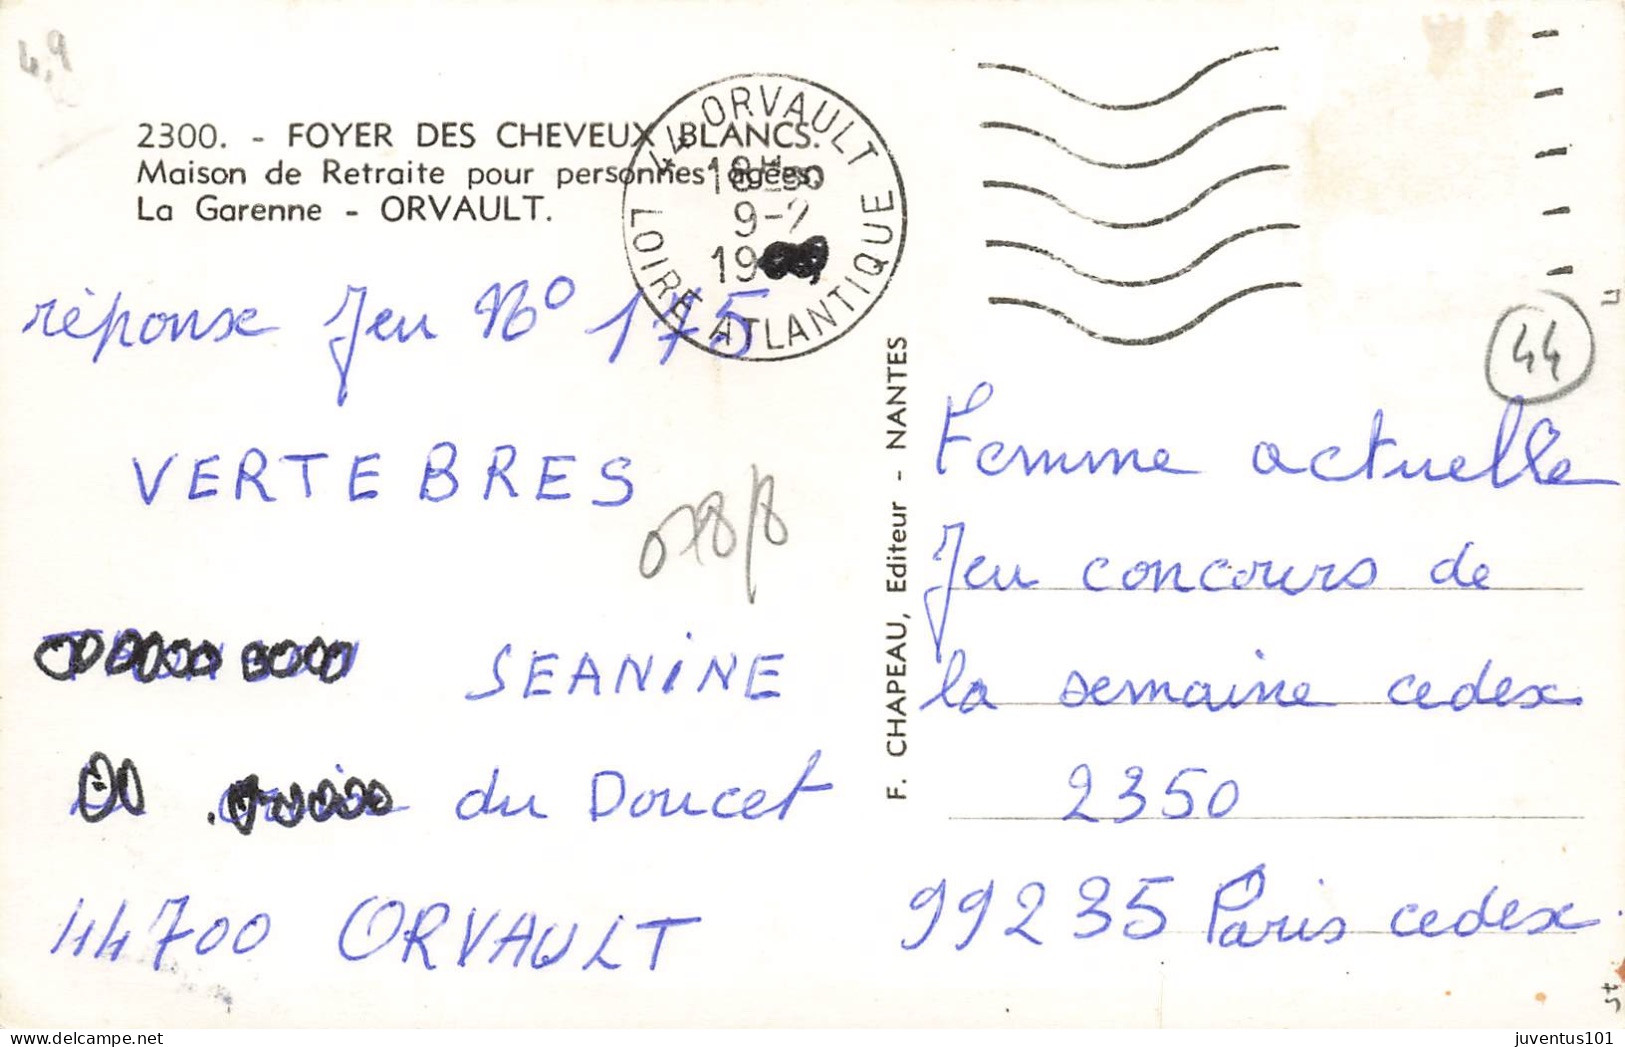 4,9
2300. - FOYER DES CHEVEUX BLANCS.
Maison de Retraite pour personnes agées.
La Garenne - ORVAULT.
44 ORVAULT
18H30
9-2
19
LOIRE ATLANTIQUE
réponse Jeu N° 175
VERTEBRES
078/8
SEANINE
du Doucet
44700 ORVAULT
F. CHAPEAU, Editeur - NANTES
44
Femme actuelle
Jeu concours de
la semaine cedex
2350
99235 Paris cedex
juventus101